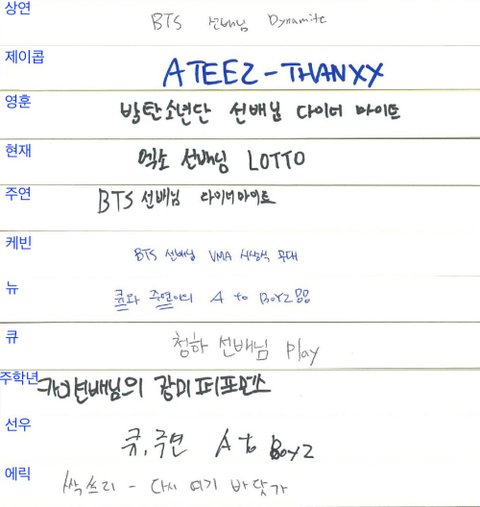 상연 BTS 선배님 Dynamite
제이콥 ATEEZ - THANXX
영훈 방탄소년단 선배님 다이너마이트
현재 엑소 선배님 LOTTO
주연 BTS 선배님 다이너마이트
케빈 BTS 선배님 VMA 시상식 무대
뉴 큐와 주연이의 A to BOYZ
큐 청하 선배님 Play
주학년 카이선배님의 장미퍼포먼스
선우 큐, 주연 A to BOYZ
에릭 싹쓰리 - 다시 여기 바닷가